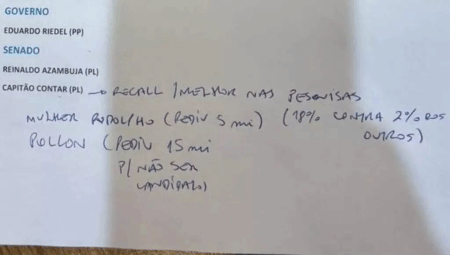 GOVERNO
EDUARDO RIEDEL (PP)
SENADO
REINALDO AZAMBUJA (PL)
CAPITÃO CONTAR (PL) → RECALL / MELHOR NAS PESQUISAS
MULHER RODOLHO (PEDIU 5 mi) (18% CONTRA 2% DOS OUTROS)
POLLON (PEDIU 15 mi
P/ NÃO SER
CANDIDATO)